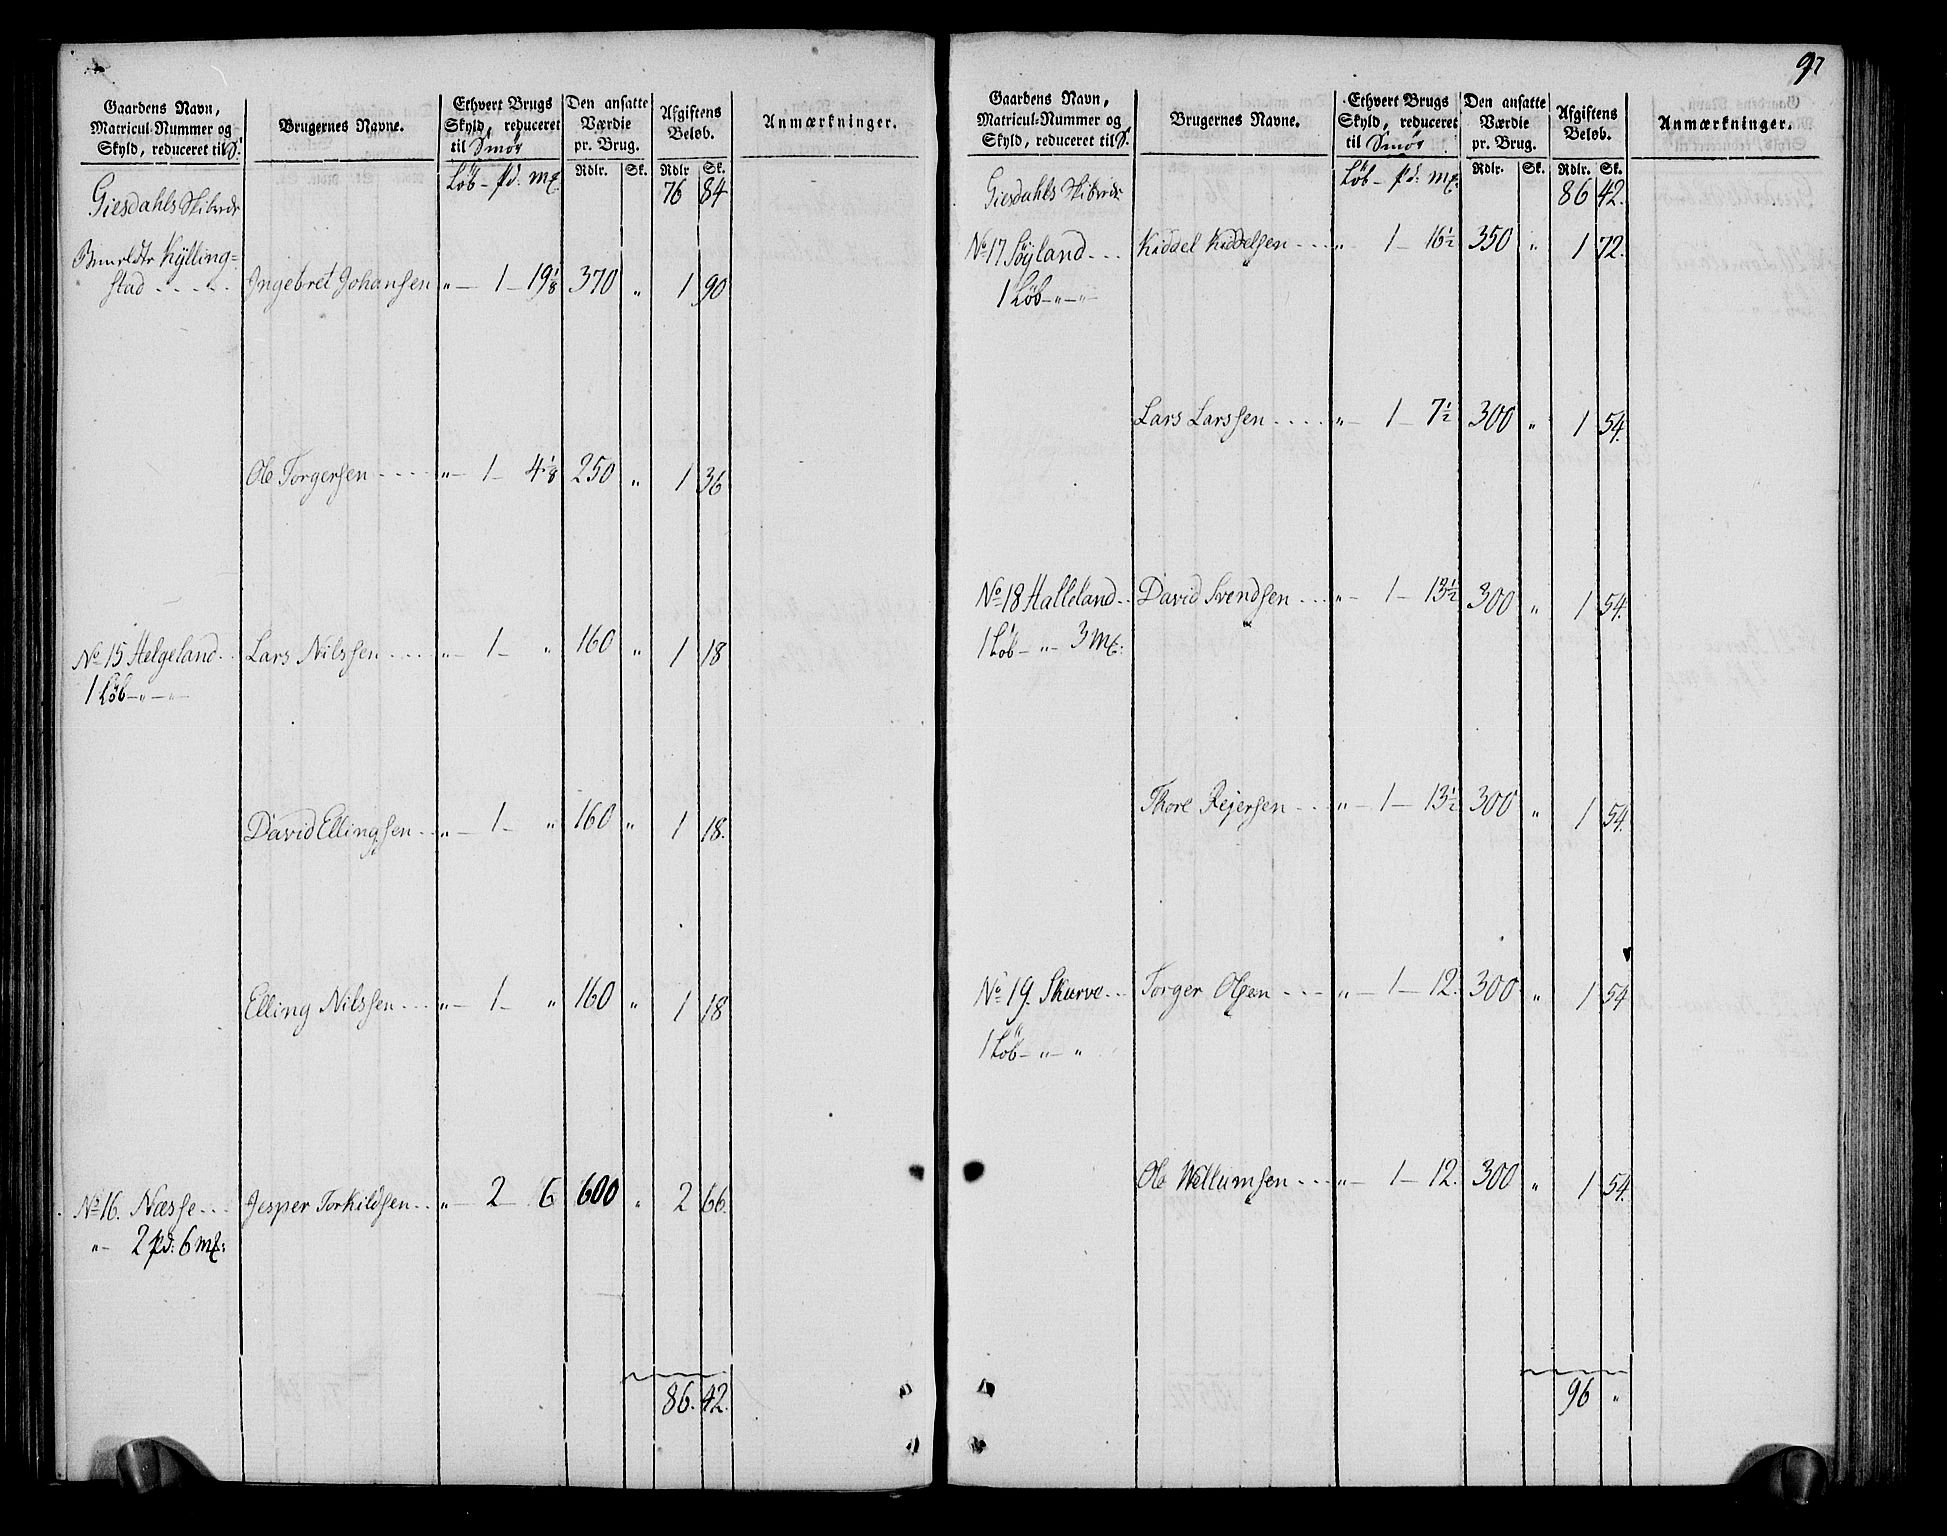 Gaardens Navn, Matricul-Nummer og Skyld, reduceret til S. | Brugernes Navne. | Ethvert Brugs Skyld, reduceret til Smør | Den ansatte Værdie pr. Brug. | Afgiftens Beløb. | Anmærkninger.
Løb - pd: mk: | Rdlr. | Sk. | Rdlr | Sk.
Giesdahls Skibrede 76 84
Kylling=
stad .... Ingebret Johansen „ — 1 — 19 1/8 370 „ 1 90
Ole Torgersen .... „ — 1 — 4 1/8 250 „ 1 36
No 15 Helgeland .. Lars Nilssen .... „ — 1 — „ 160 „ 1 18
1 Løb — „ — „
David Ellingsen .. „ — 1 — „ 160 „ 1 18.
Elling Nilssen ... „ — 1 — „ 160 „ 1 18
No 16. Næsse ... Jesper Torkildsen .. „ — 2 — 6 600 „ 2 66.
„ - 2 pd: 6 mk:
86. 42.
97
Gaardens Navn, Matricul-Nummer og Skyld, reduceret til S. | Brugernes Navne. | Ethvert Brugs Skyld, reduceret til Smør | Den ansatte Værdie pr. Brug. | Afgiftens Beløb. | Anmærkninger.
Løb - pd: mk: | Rdlr. | Sk. | Rdlr. | Sk.
Giesdahls Skibrede 86 42.
No 17 Søyland ... Kiddel Kiddelsen .... „ 1 — 16 1/2 350 „ 1 72.
1 Løb — „ — „
Lars Larssen .... „ — 1 — 7 1/2 300 „ 1 54.
No 18 Halleland .. David Svendsen ... „ — 1 — 13 1/2 300 „ 1 54.
1 Løb — „ — 3 mk:
Thore Rejersen ... „ — 1 — 13 1/2 300 „ 1 54.
No 19. Skurve ... Torger Olsen .... „ — 1 — 12. 300 „ 1 54
1 Løb — „ — „
Ole Wellumsen ... „ — 1 — 12. 300 „ 1 54.
96 „